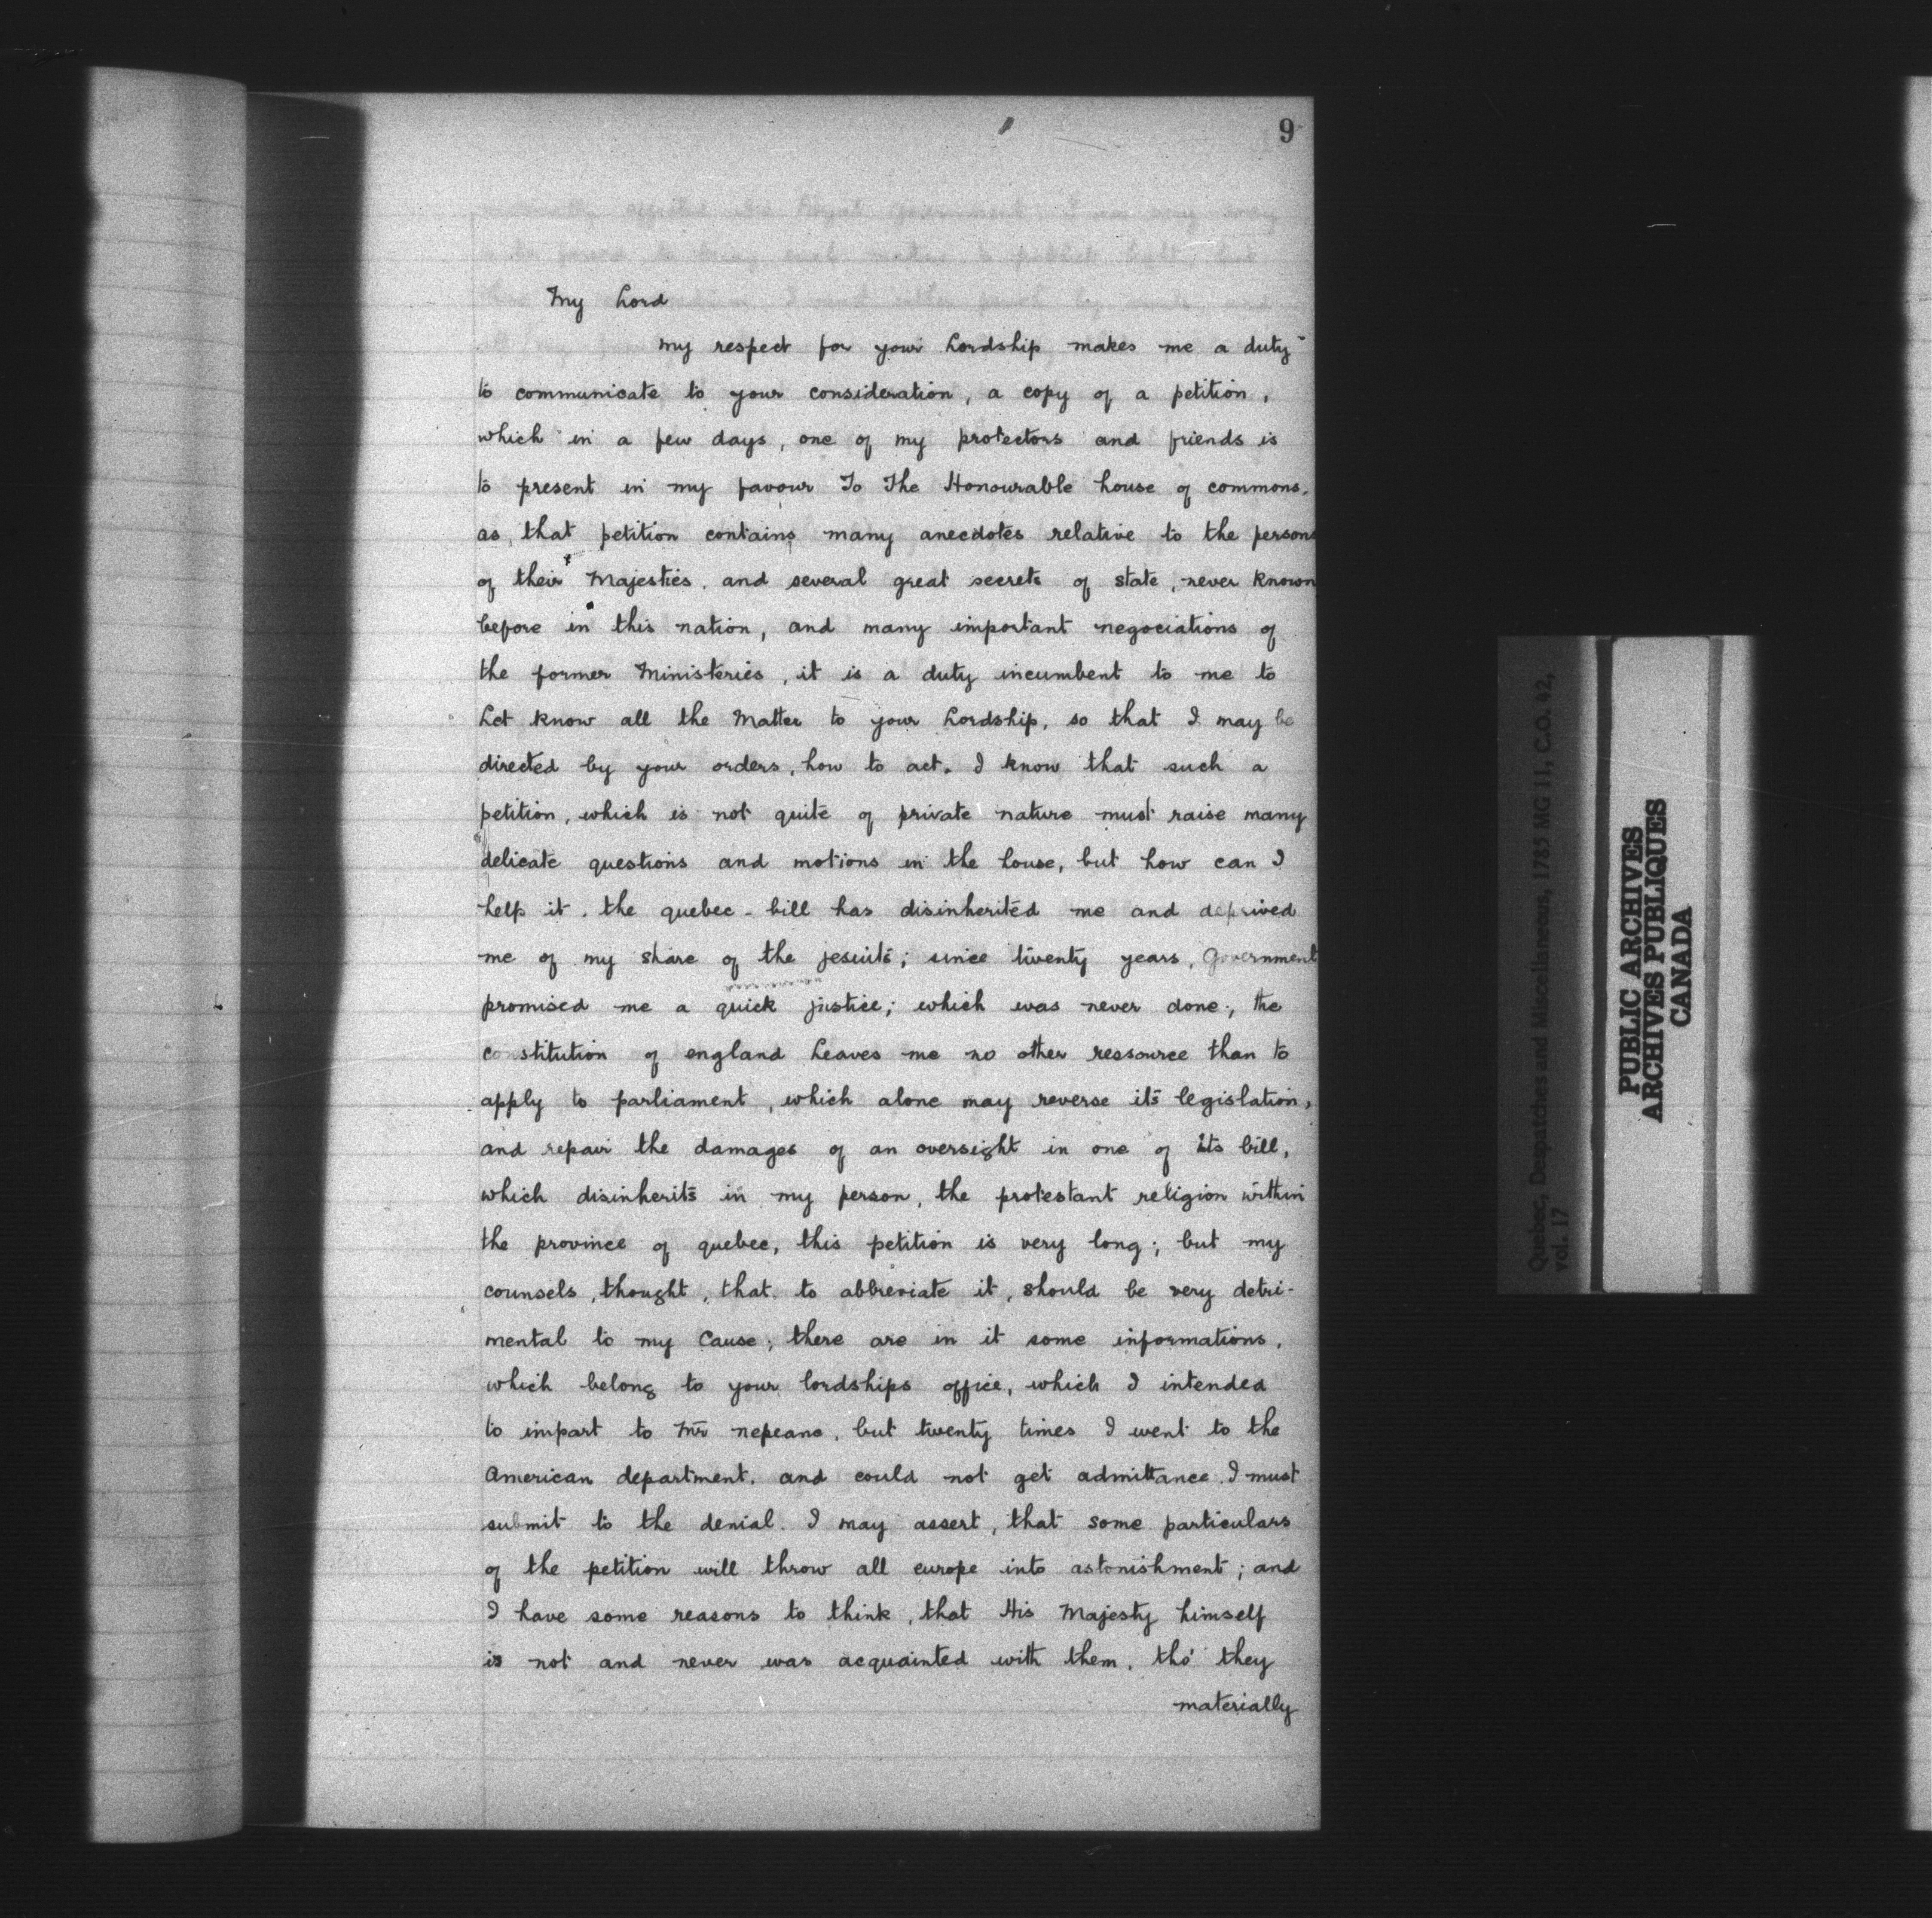 9
My Lord
my respect for your Lordship makes me a duty
to communicate to your consideration, a copy of a petition,
which in a few days, one of my protectors and friends is
to present in my favour To The Honourable house of commons,
as that petition contains many anecdotes relative to the persons
of their Majesties, and several great secrets of state, never known
before in this nation, and many important negociations of
the former Ministeries, it is a duty incumbent to me to
Let know all the Matter to your Lordship, so that I may be
directed by your orders, how to act. I know that such a
petition, which is not quite of private nature must raise many
delicate questions and motions in the house, but how can I
help it. the quebec-bill has disinherited me and deprived
me of my share of the jesuits; since twenty years, Government
promised me a quick justice; which was never done; the
constitution of england Leaves me no other ressource than to
apply to parliament, which alone may reverse its legislation,
and repair the damages of an oversight in one of its bill,
which disinherits in my person, the protestant religion within
the province of quebec, this petition is very long; but my
counsels, thought, that to abbreviate it, should be very detri-
mental to my Cause; there are in it some informations,
which belong to your lordships office, which I intended
to impart to Mr nepeane, but twenty times I went to the
American department, and could not get admittance. I must
submit to the denial. I may assert, that some particulars
of the petition will throw all europe into astonishment; and
I have some reasons to think, that His Majesty himself
is not and never was acquainted with them, tho' they
materially
Quebec, Despatches and Miscellaneous, 1785 MG 11, C.O. 42,
vol. 17
PUBLIC ARCHIVES
ARCHIVES PUBLIQUES
CANADA